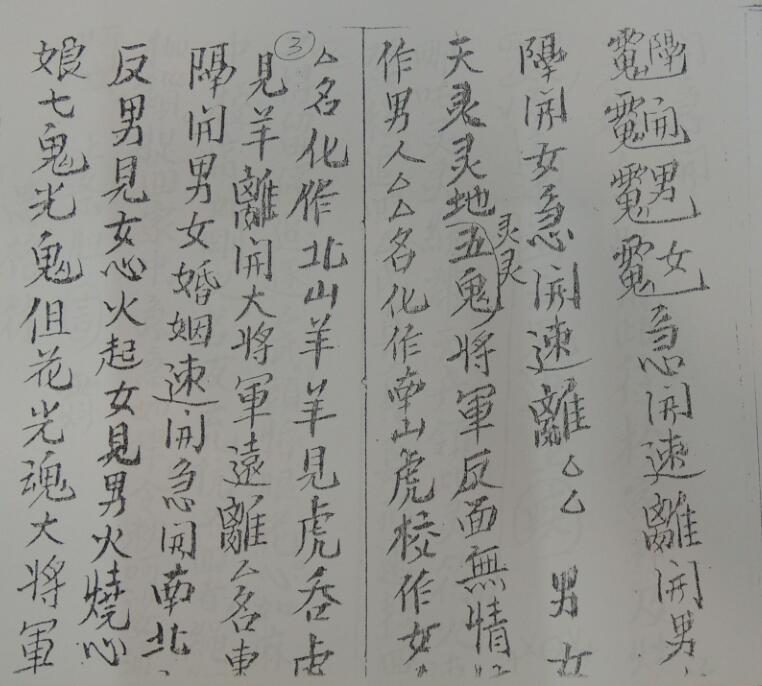 隔開男女
急開速離開男
隔開女急開速離△△男女
天灵灵地灵灵五鬼將軍反面無情
作男人△△名化作南山虎校作女
③
△名化作北山羊羊見虎吞虎
見羊離開大將軍遠離△名東
隔開男女婚姻速開急開南北
反男見女心火起女見男火燒心
娘七鬼光鬼但花光魂大將軍